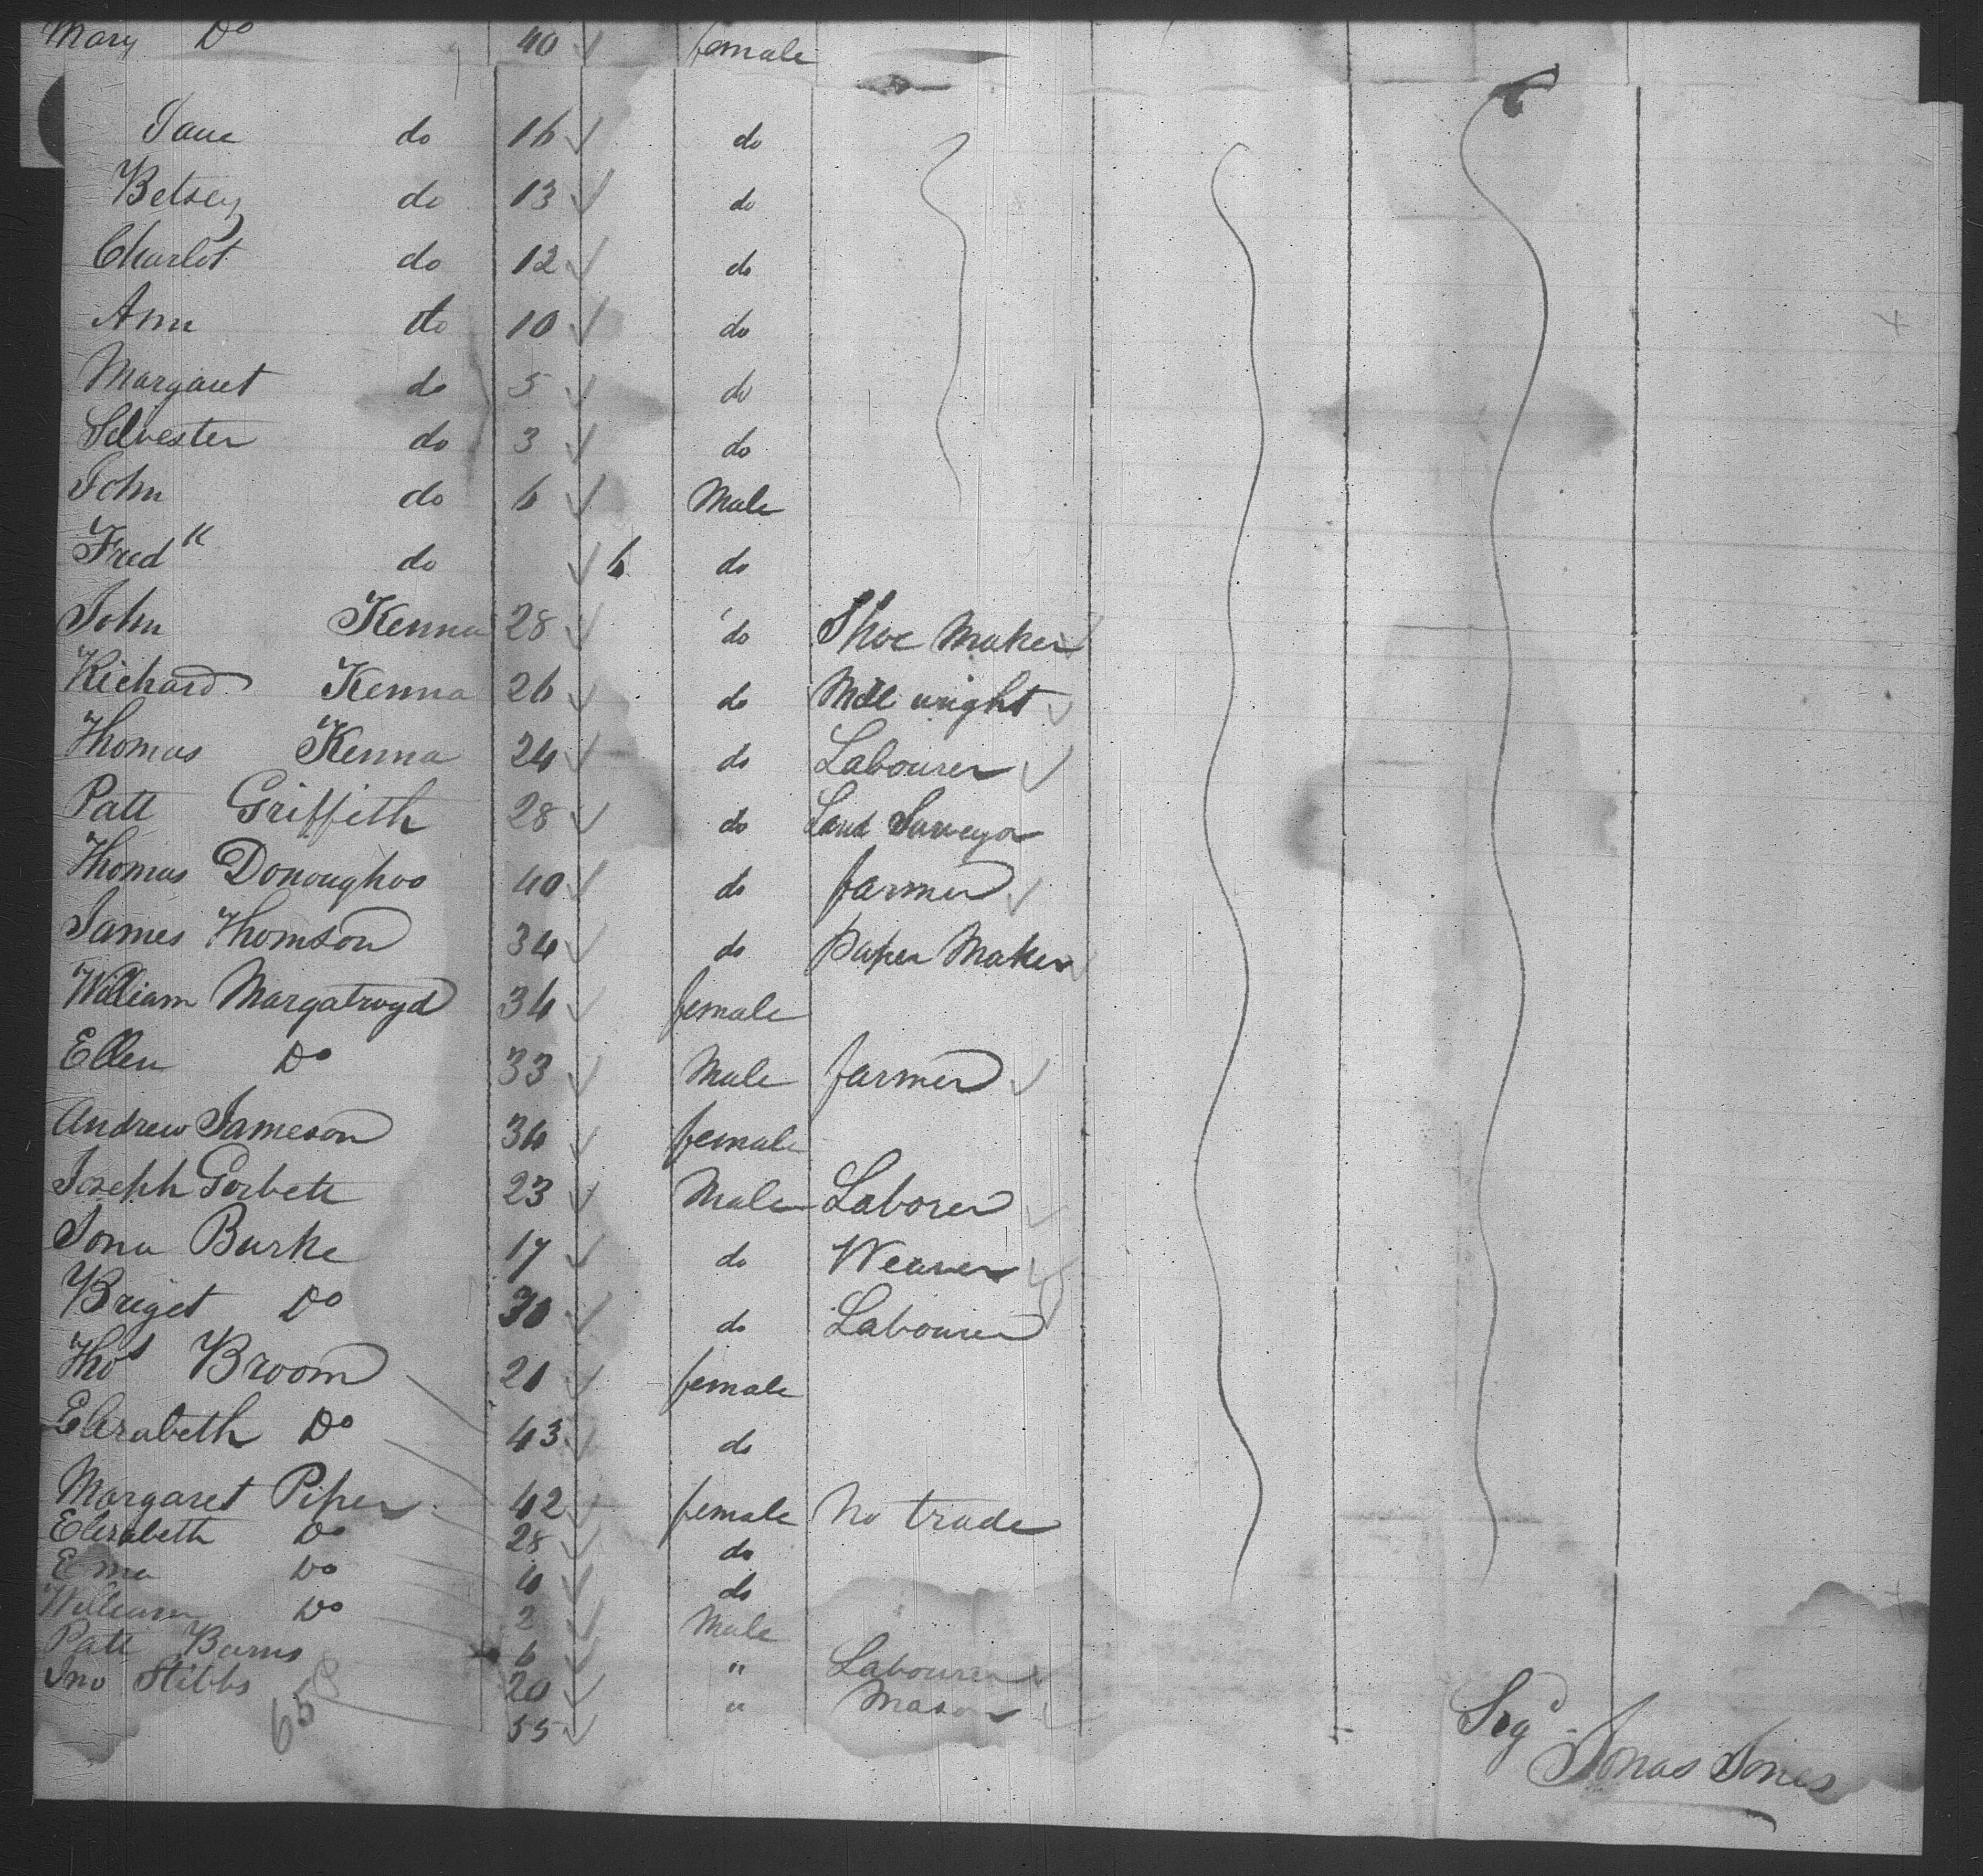 Mary Do 40 female
Jane do 16 do
Betsey do 13 do
Charlot do 12 do
Ann do 10 do
Margaret do 5 do
Silvester do 3 do
John do 6 Male
Fredk do 6 do
John Kenna 28 do Shoe Maker
Richard Kenna 26 do Mill wright
Thomas Kenna 24 do Labourer
Patt Griffith 28 do Land Surveyor
Thomas Donoughoo 40 do farmer
James Thomson 34 do paper Maker
William Margatroyd 34 female
Ellen Do 33 Male farmer
Andrew Jameson 34 female
Joseph Gorbett 23 Male Laborer
Jona Burke 17 do Weaver
Briget Do 30 do Labourer
Thos Broom 21 female
Elizabeth Do 43 do
Margaret Piper 42 female No trade
Elizabeth Do 28 do
Ema Do 4 do
William Do 2 Male
Patt Burns 6 " Labourer
Jno Stibbs 20 " Mason
658 55
Sigd Jonas Jones